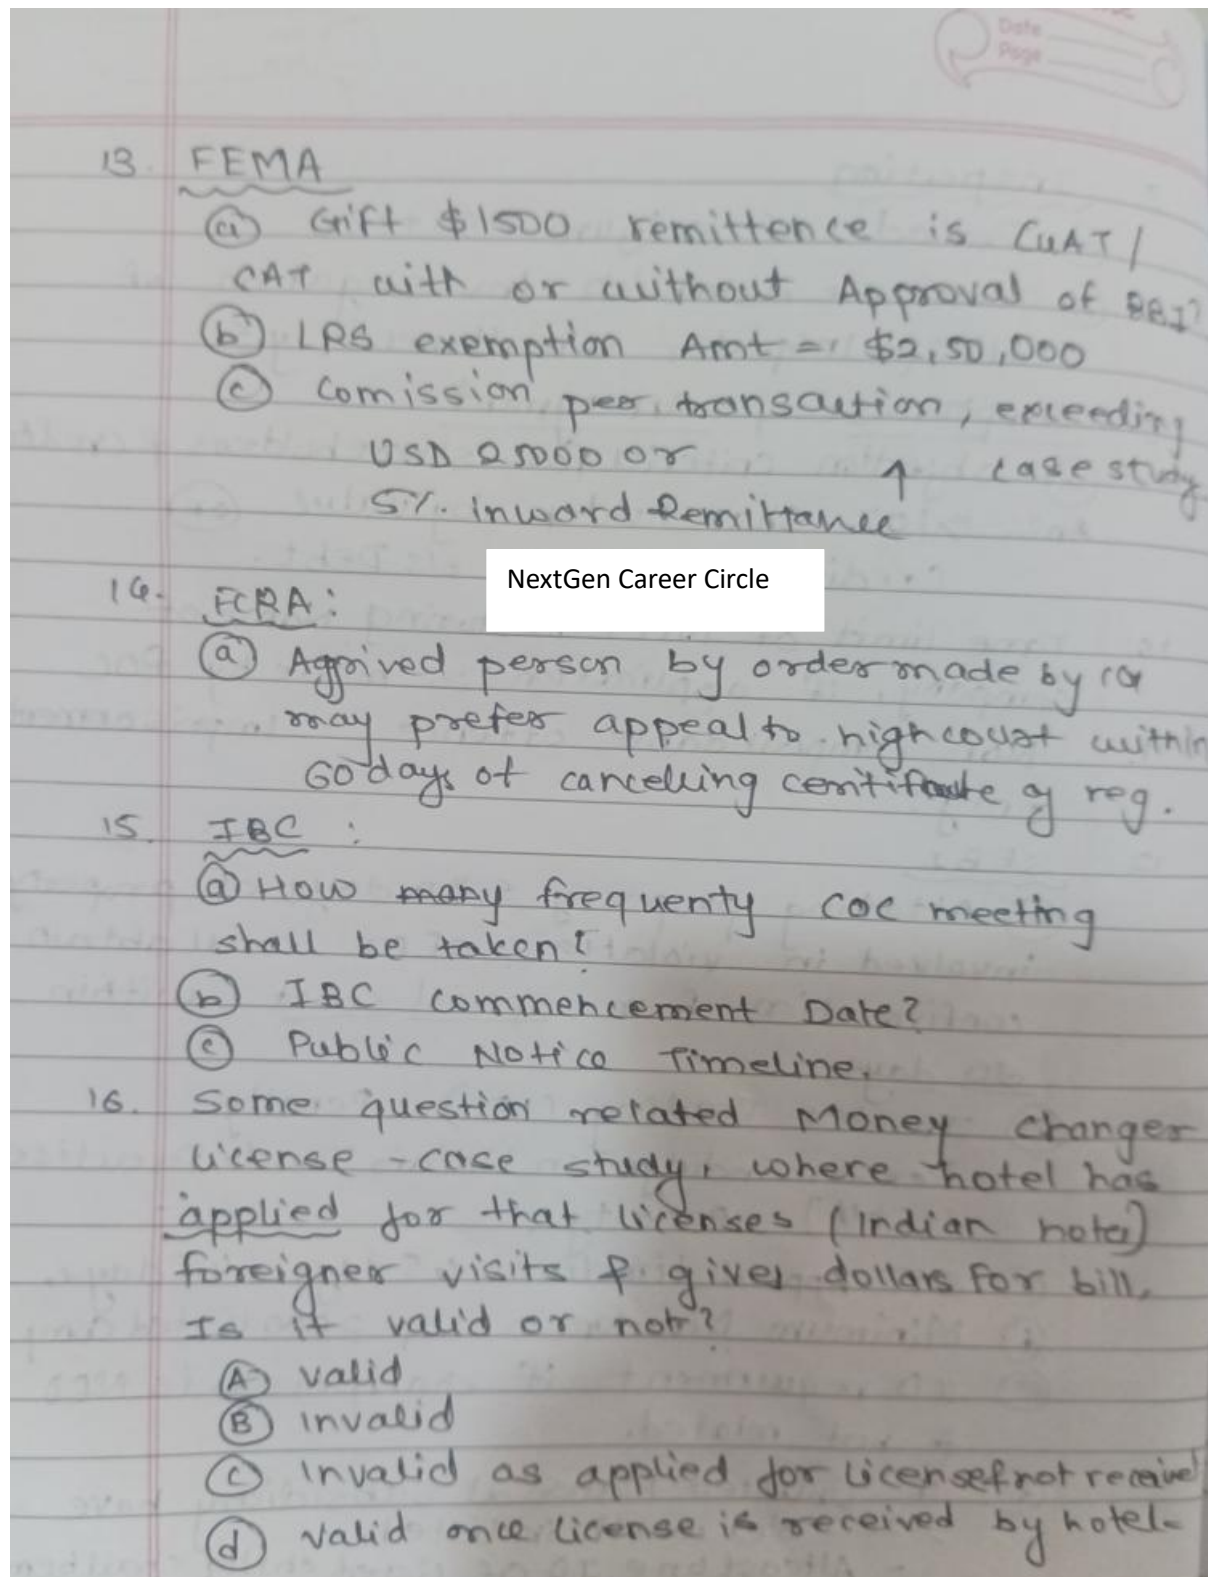 Date
Page
13. FEMA
(a) Gift $1500 remittence is CuAT/
CAT with or without Approval of RBI?
(b) LRS exemption Amt = $2,50,000
(c) Comission per transaction, exceeding
USD 25000 or ↑ case study
5%. inward Remittance
NextGen Career Circle
14. FCRA:
(a) Aggrived person by order made by CG
may prefer appeal to high court within
60 days of cancelling certificate of reg.
15. IBC :
(a) How many frequenty COC meeting
shall be taken?
(b) IBC commencement Date?
(c) Public Notice Timeline.
16. Some question related Money changer
license - case study, where hotel has
applied for that licenses (Indian hotel)
foreigner visits & gives dollars for bill,
Is it valid or not?
(A) valid
(B) invalid
(C) invalid as applied for license & not received
(d) valid once license is received by hotel-